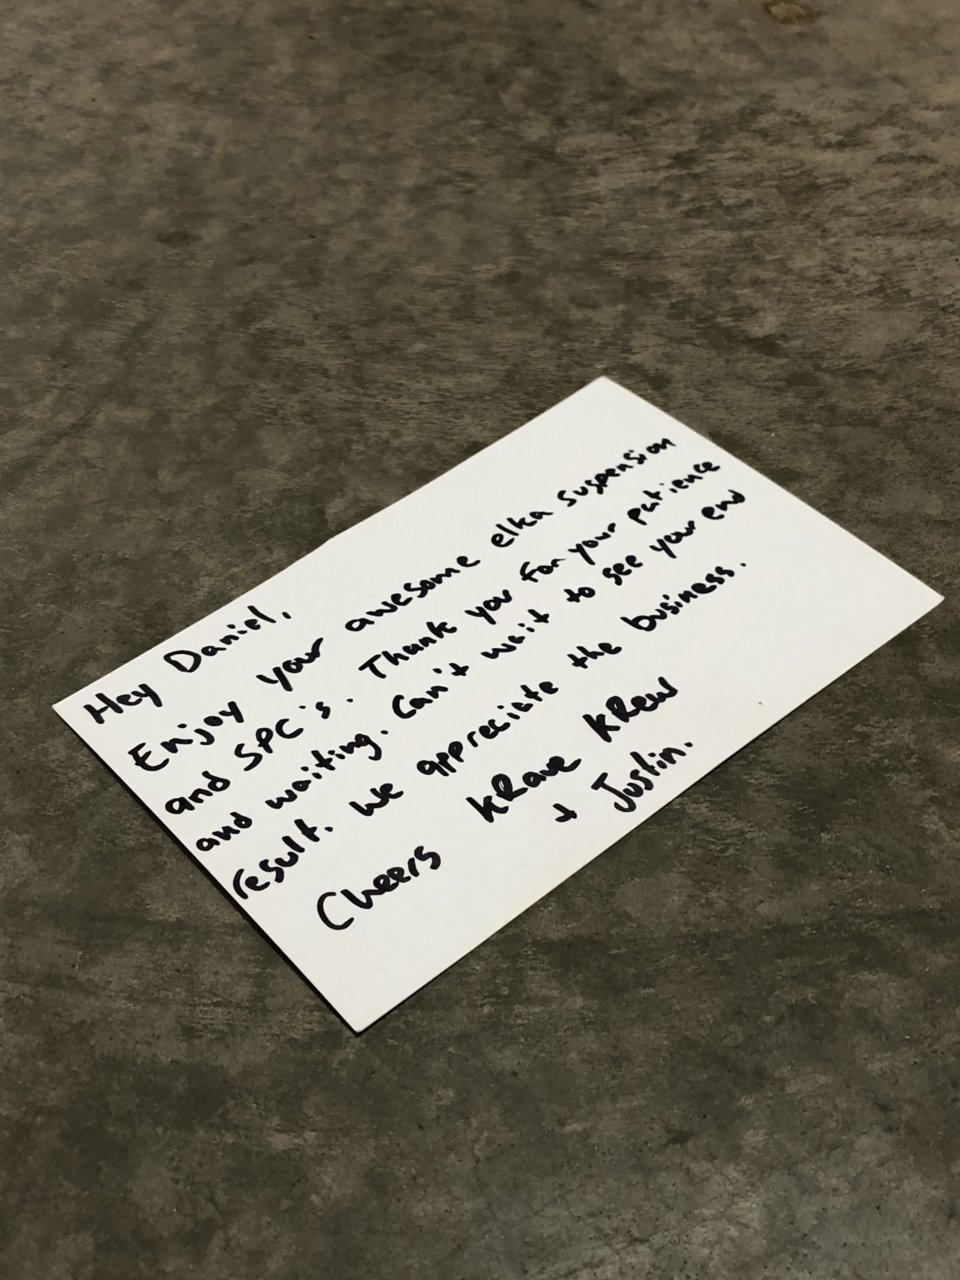 Hey Daniel,
Enjoy your awesome elka suspension
and SPC's. Thank you for your patience
and waiting. Can't wait to see your end
result. We appreciate the business.
Cheers kRave kRew
+ Justin.